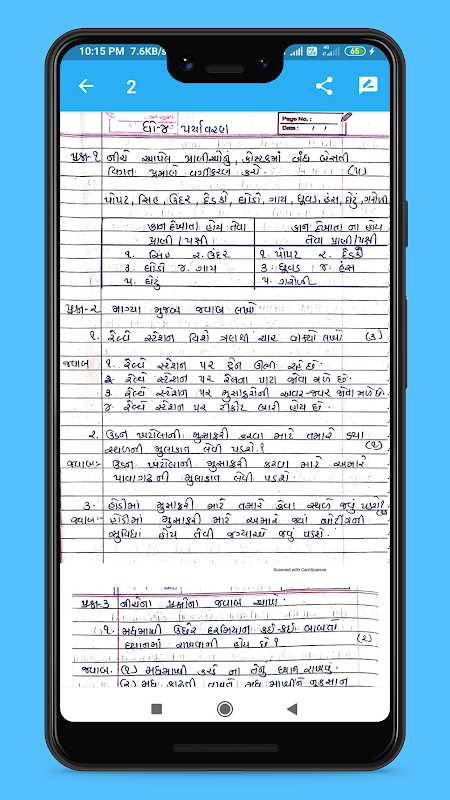 10:15 PM 7.6KB/s
65
2
ધો-૪ પર્યાવરણ
Page No. :
Date : / /
પ્રશ્ન-૧ નીચે આપેલ પ્રાણીઓનું, કોષ્ટકમાં બંધ બેસતી
વિગત પ્રમાણે વર્ગીકરણ કરો. (૫)
પોપટ, સિંહ, ઉંદર, દેડકો, ઘોડો, ગાય, ઘૂવડ, હંસ, ઘેટું, ગરોળી
કાન દેખાતા હોય તેવા પ્રાણી/પક્ષી
કાન દેખાતા ના હોય તેવા પ્રાણી/પક્ષી
૧. સિંહ ૨. ઉંદર
૧. પોપટ ૨. દેડકો
૩ ઘોડો ૪. ગાય
૩ ઘૂવડ ૪. હંસ
૫. ઘેટું
૫. ગરોળી
પ્રશ્ન-૨ માગ્યા મુજબ જવાબ લખો
૧. રેલ્વે સ્ટેશન વિશે ત્રણથી ચાર વાક્યો લખો (૩)
જવાબ ૧. રેલ્વે સ્ટેશન પર ટ્રેન ઊભી રહે છે.
૨. રેલ્વે સ્ટેશન પર રેલના પાટા જોવા મળે છે.
૩. રેલ્વે સ્ટેશન પર મુસાફરોની અવર-જવર જોવા મળે છે.
૪. રેલ્વે સ્ટેશન પર ટીકીટ બારી હોય છે.
૨. ઉડન ખટોલાની મુસાફરી કરવા માટે તમારે કયા
સ્થળની મુલાકાત લેવી પડશે.? (૧)
જવાબ:- ઉડન ખટોલાની મુસાફરી કરવા માટે અમારે
પાવાગઢની મુલાકાત લેવી પડશે.
૩. હોડીમાં મુસાફરી માટે તમારે કેવા સ્થળે જવું પડશે?
જવાબ:- હોડીમાં મુસાફરી માટે અમારે જ્યાં બોટીંગની
સુવિધા હોય તેવી જગ્યાએ જવું પડશે.
Scanned with CamScanner
પ્રશ્ન-૩ નીચેના પ્રશ્નોના જવાબ આપો.
૧. મધમાખી ઉછેર દરમિયાન કઈ-કઈ બાબતો
ધ્યાનમાં રાખવાની હોય છે? (૨)
જવાબ. (૧) મધમાખી કરડે ના તેનું ધ્યાન રાખવું.
(૨) મધ કાઢતી વખતે મધ માખીને નુકસાન